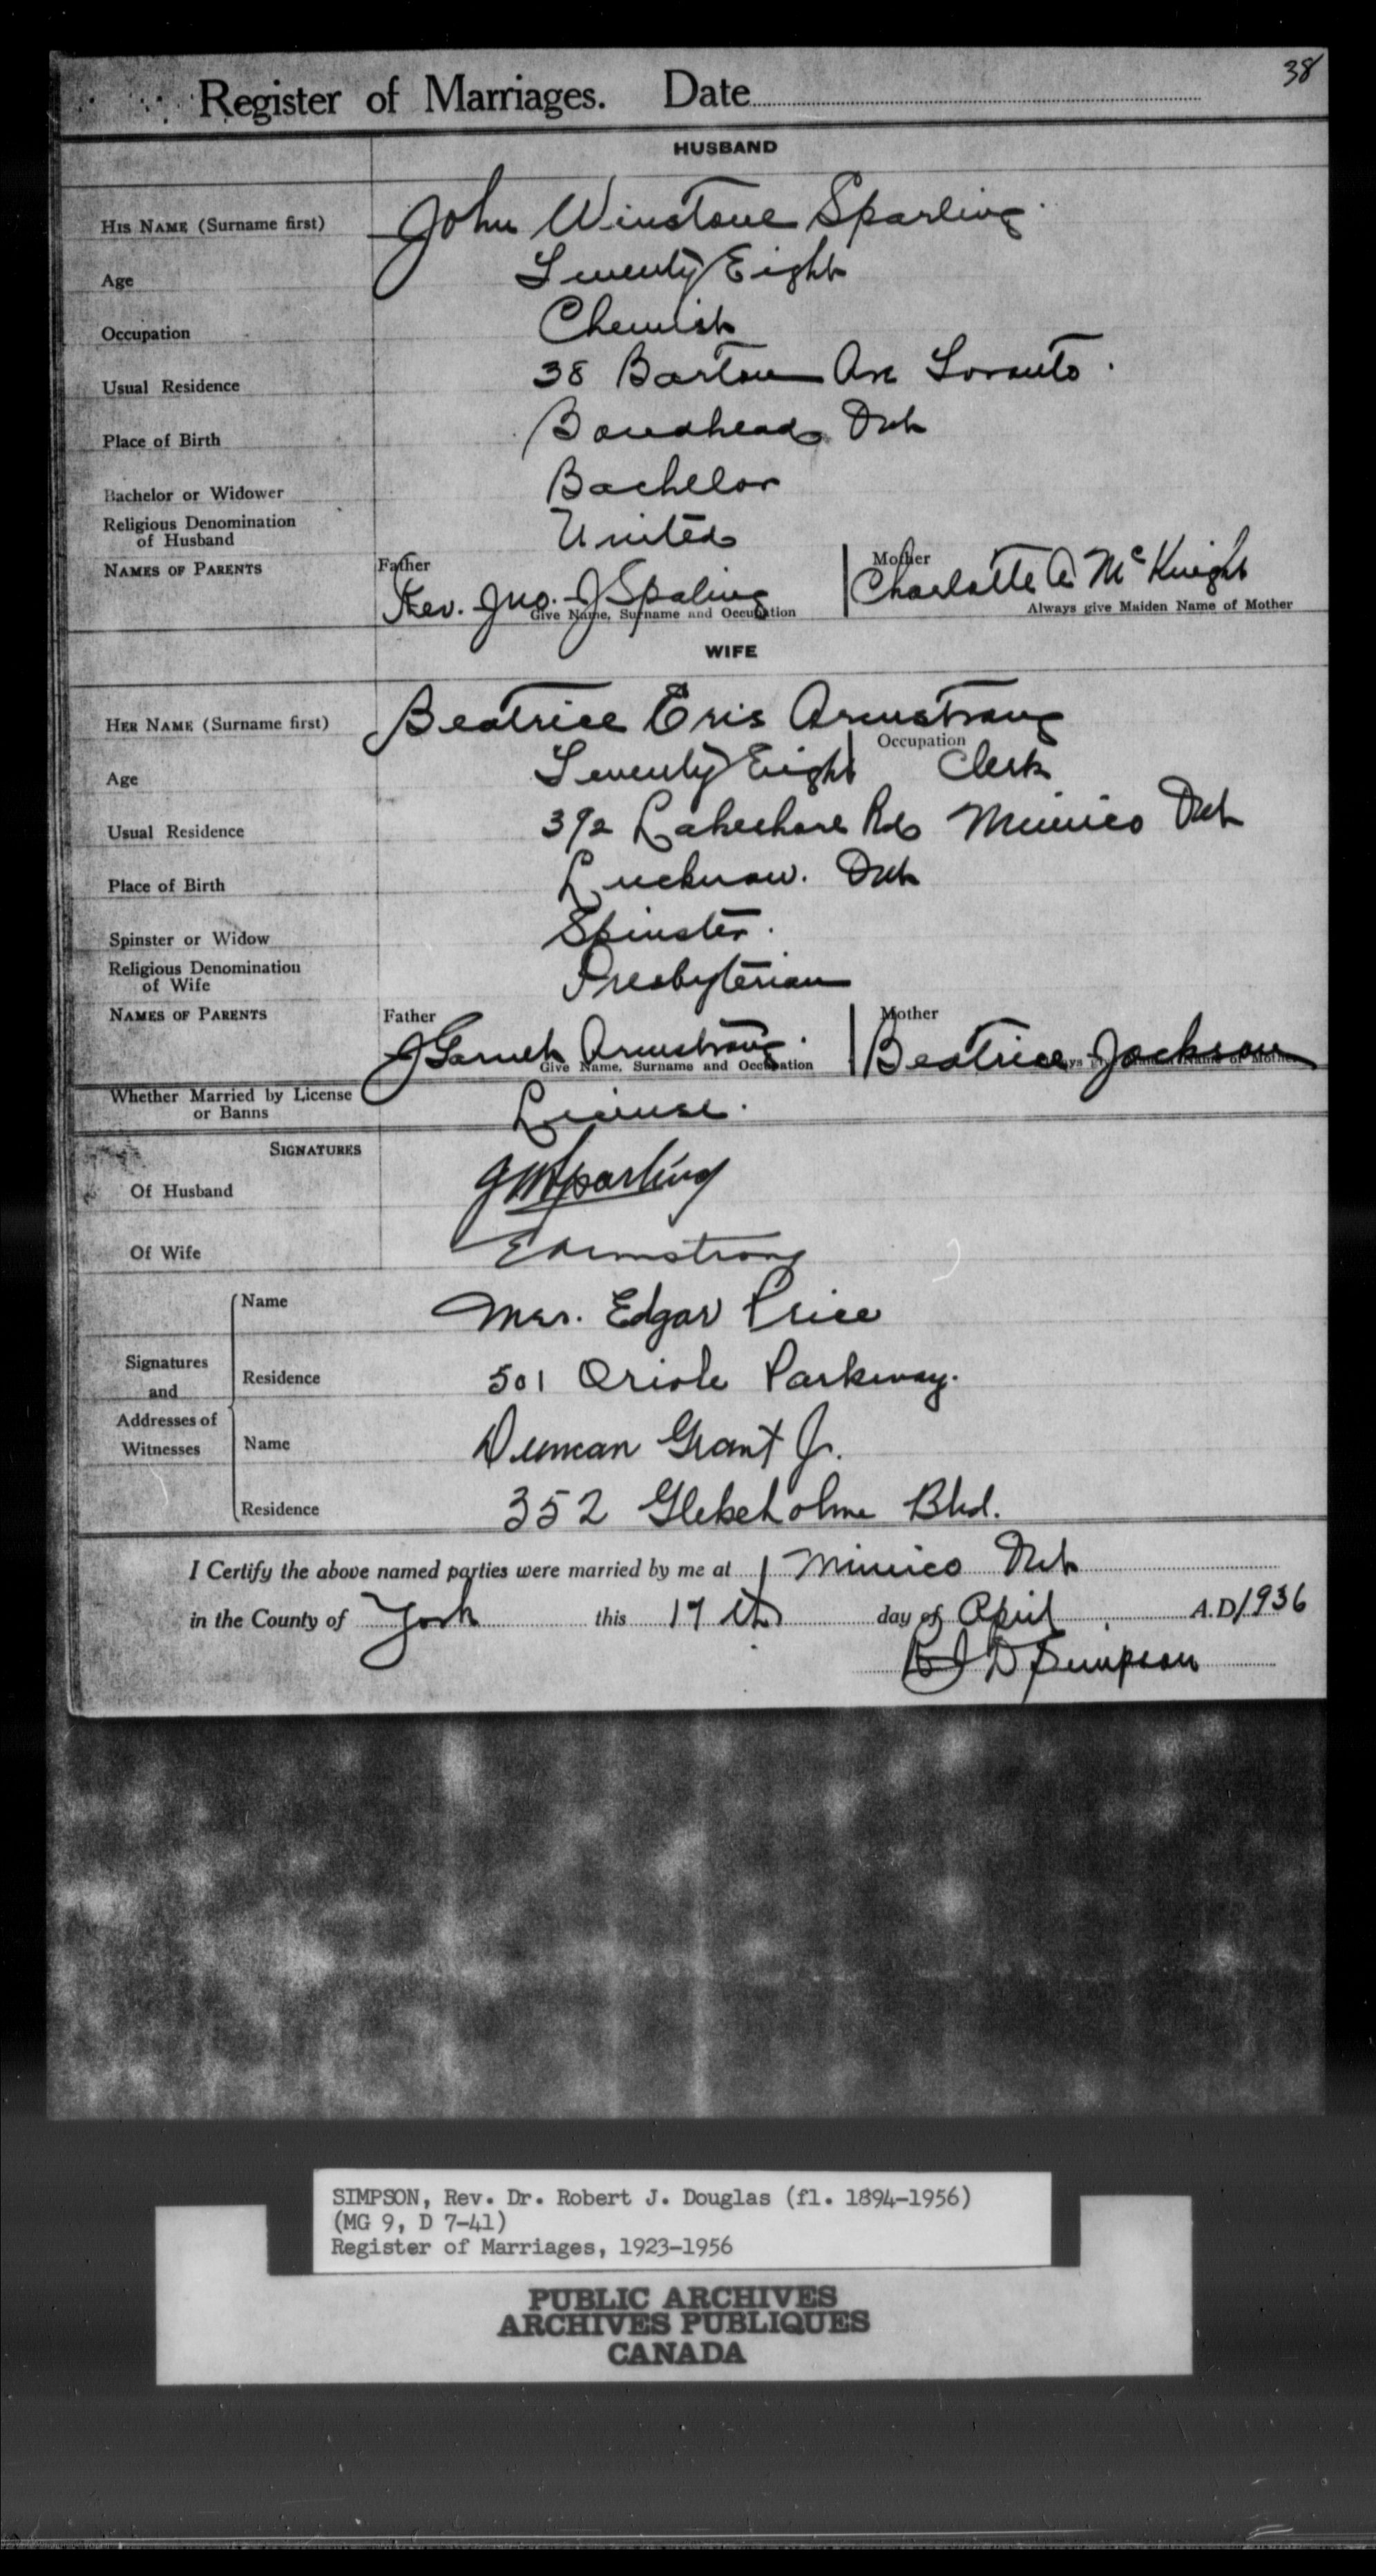 38
Register of Marriages. Date
HUSBAND
His Name (Surname first) John Winstone Sparling
Age Twenty Eight
Occupation Chemist
Usual Residence 38 Barton Ave Toronto.
Place of Birth Bondhead Ont
Bachelor or Widower Bachelor
Religious Denomination
of Husband United
Names of Parents Father Rev. Jno. J Spaling Mother Charlotte A McKnight
Give Name, Surname and Occupation Always give Maiden Name of Mother
WIFE
Her Name (Surname first) Beatrice Eris Armstrong
Age Twenty Eight Occupation Clerk
Usual Residence 392 Lakeshore Rd Mimico Ont
Place of Birth Lucknow. Ont
Spinster or Widow Spinster.
Religious Denomination
of Wife Presbyterian
Names of Parents Father J Garneth Armstrong. Mother Beatrice Jackson
Give Name, Surname and Occupation Always give Maiden Name of Mother
Whether Married by License
or Banns License.
Signatures
Of Husband JWSparling
Of Wife EArmstrong
Signatures
and
Addresses of
Witnesses
Name Mrs. Edgar Price
Residence 501 Oriole Parkway.
Name Duncan Grant Jr.
Residence 352 Glebeholme Blvd.
I Certify the above named parties were married by me at Mimico Ont
in the County of York this 17th day of April A.D. 1936
R J D Simpson
SIMPSON, Rev. Dr. Robert J. Douglas (fl. 1894-1956)
(MG 9, D 7-41)
Register of Marriages, 1923-1956
PUBLIC ARCHIVES
ARCHIVES PUBLIQUES
CANADA